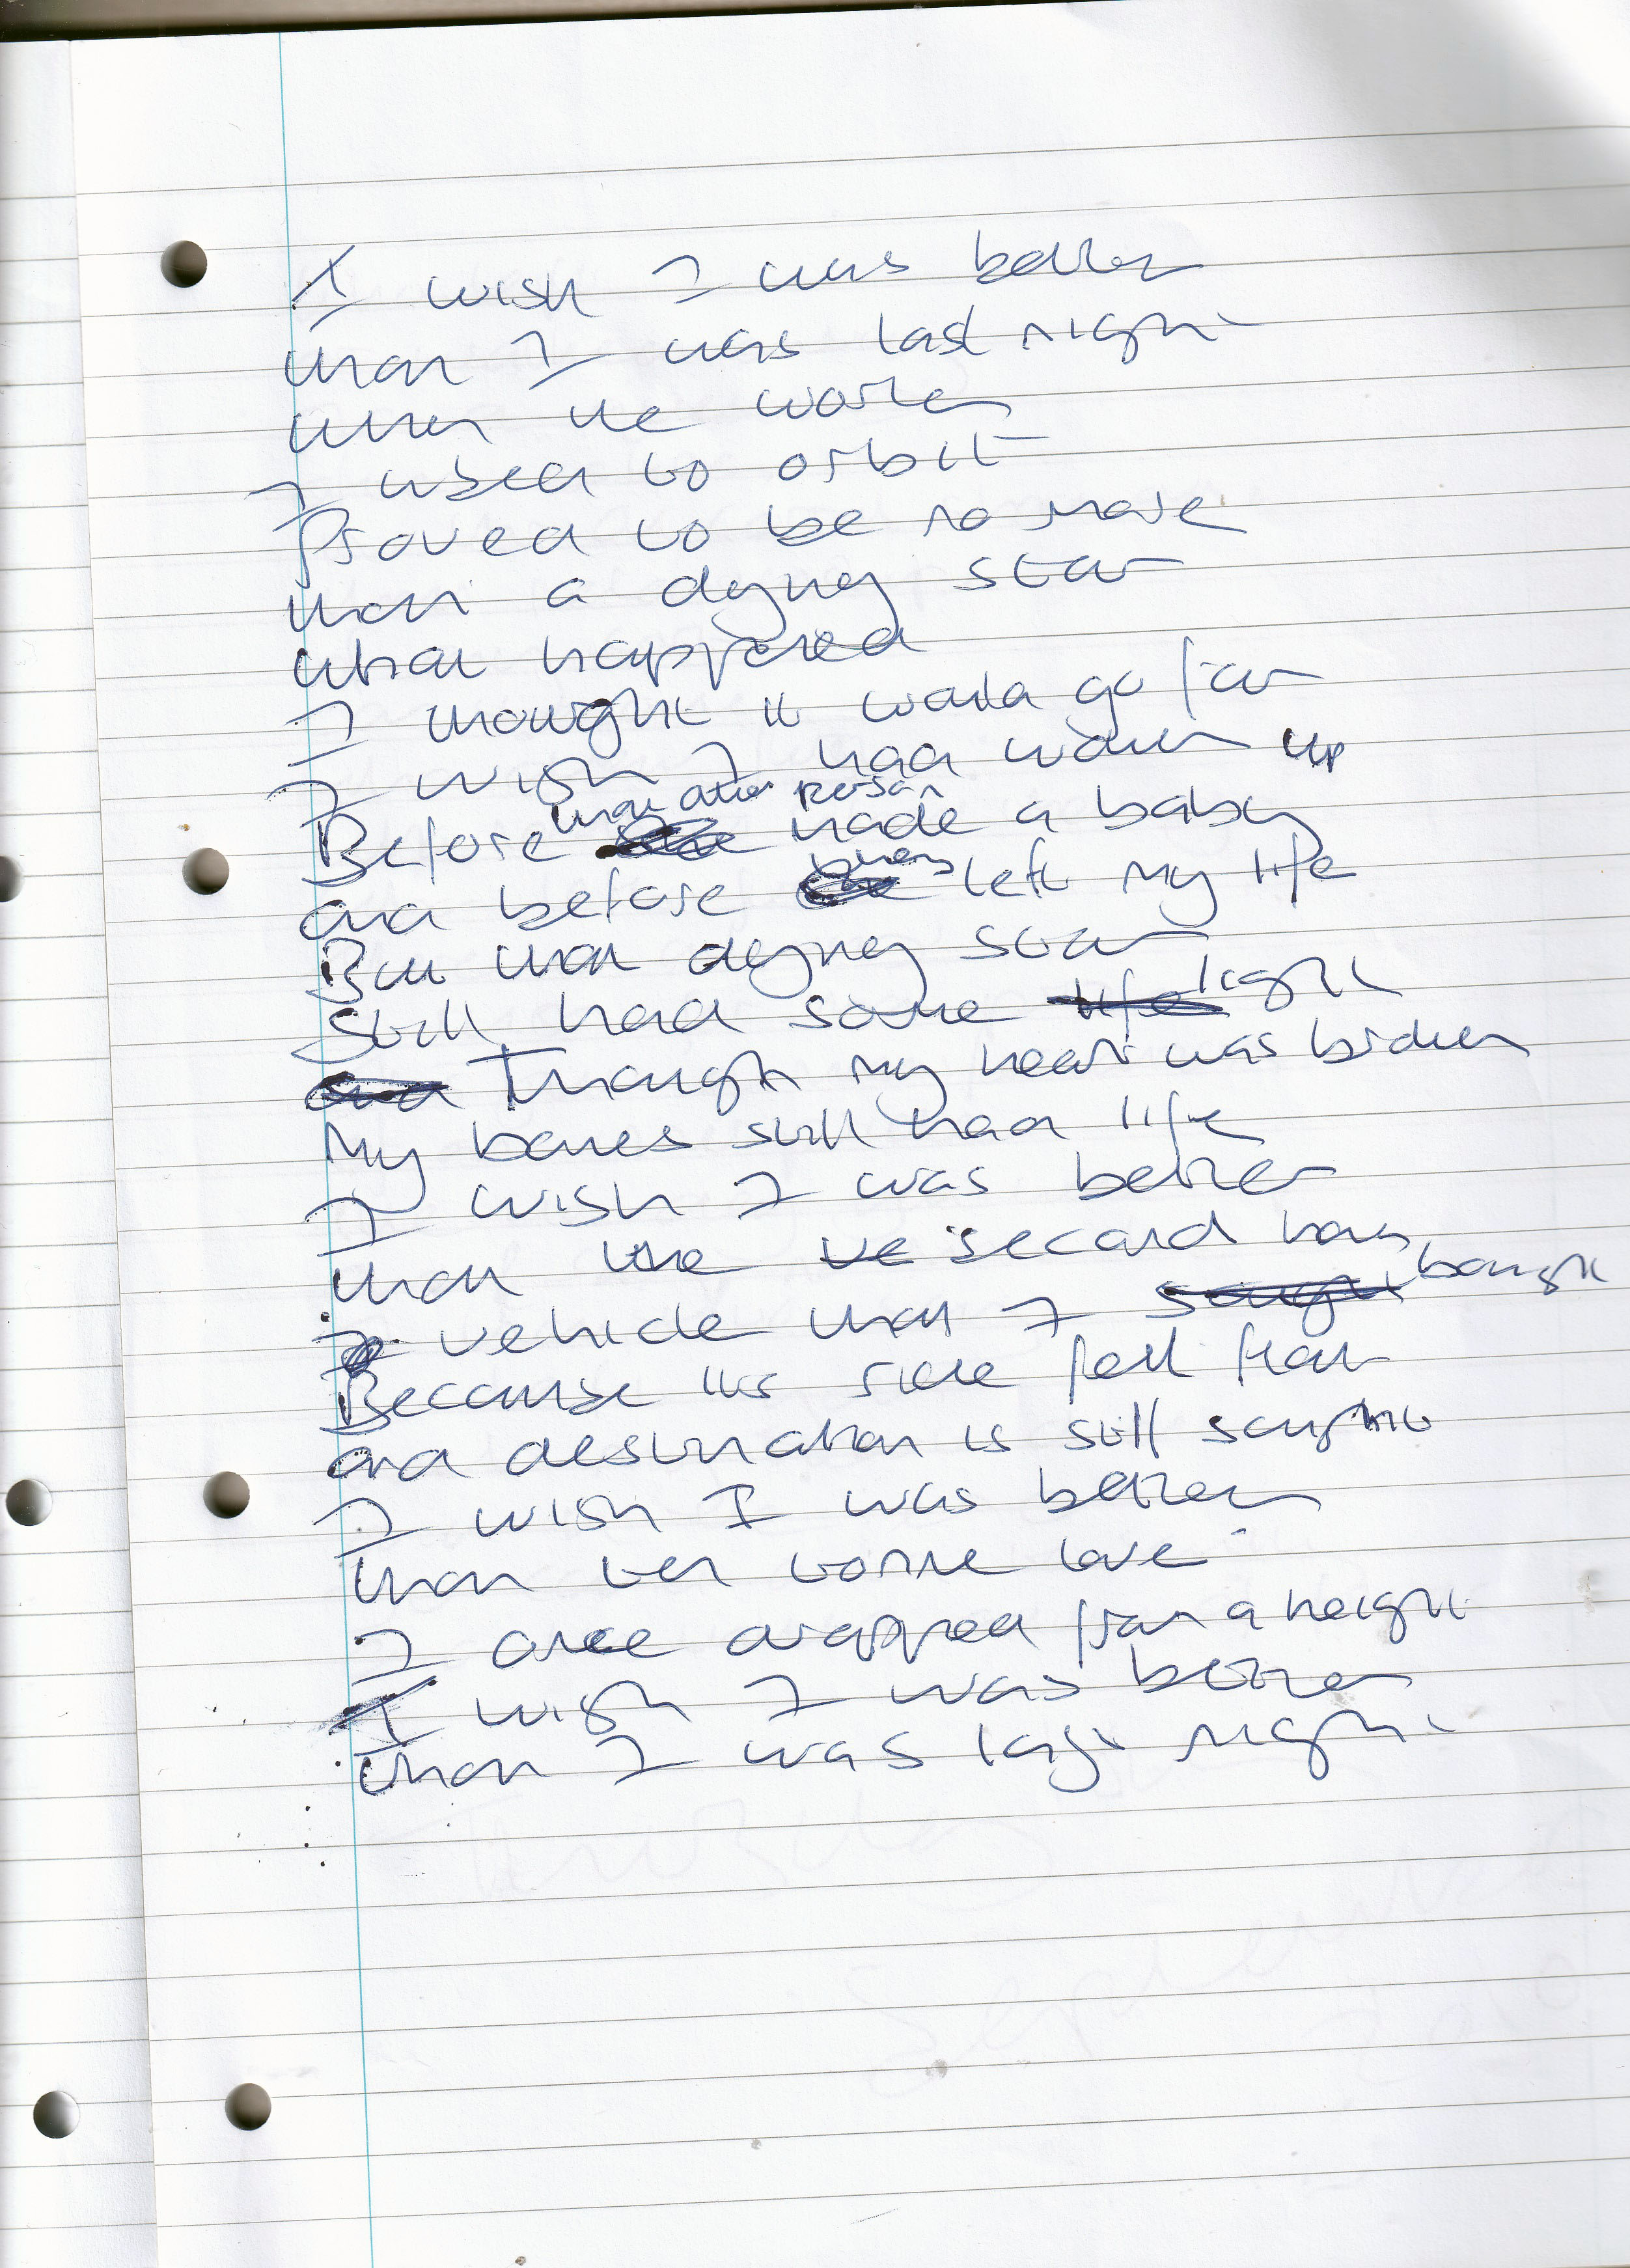 I wish I was better
than I was last night
when the world
I used to orbit
Proved to be no more
than a dying star
What happened
I thought it would go far
I wish I had woken up
Before that other person made a baby
and before they left my life
But that dying star
Still had some light
Though my heart was broken
My bones still had life
I wish I was better
than the second hand
vehicle that I bought
Because its ride felt
and destination is still
I wish I was better
than ten tonne love
I once dropped from a height
I wish I was better
than I was last night